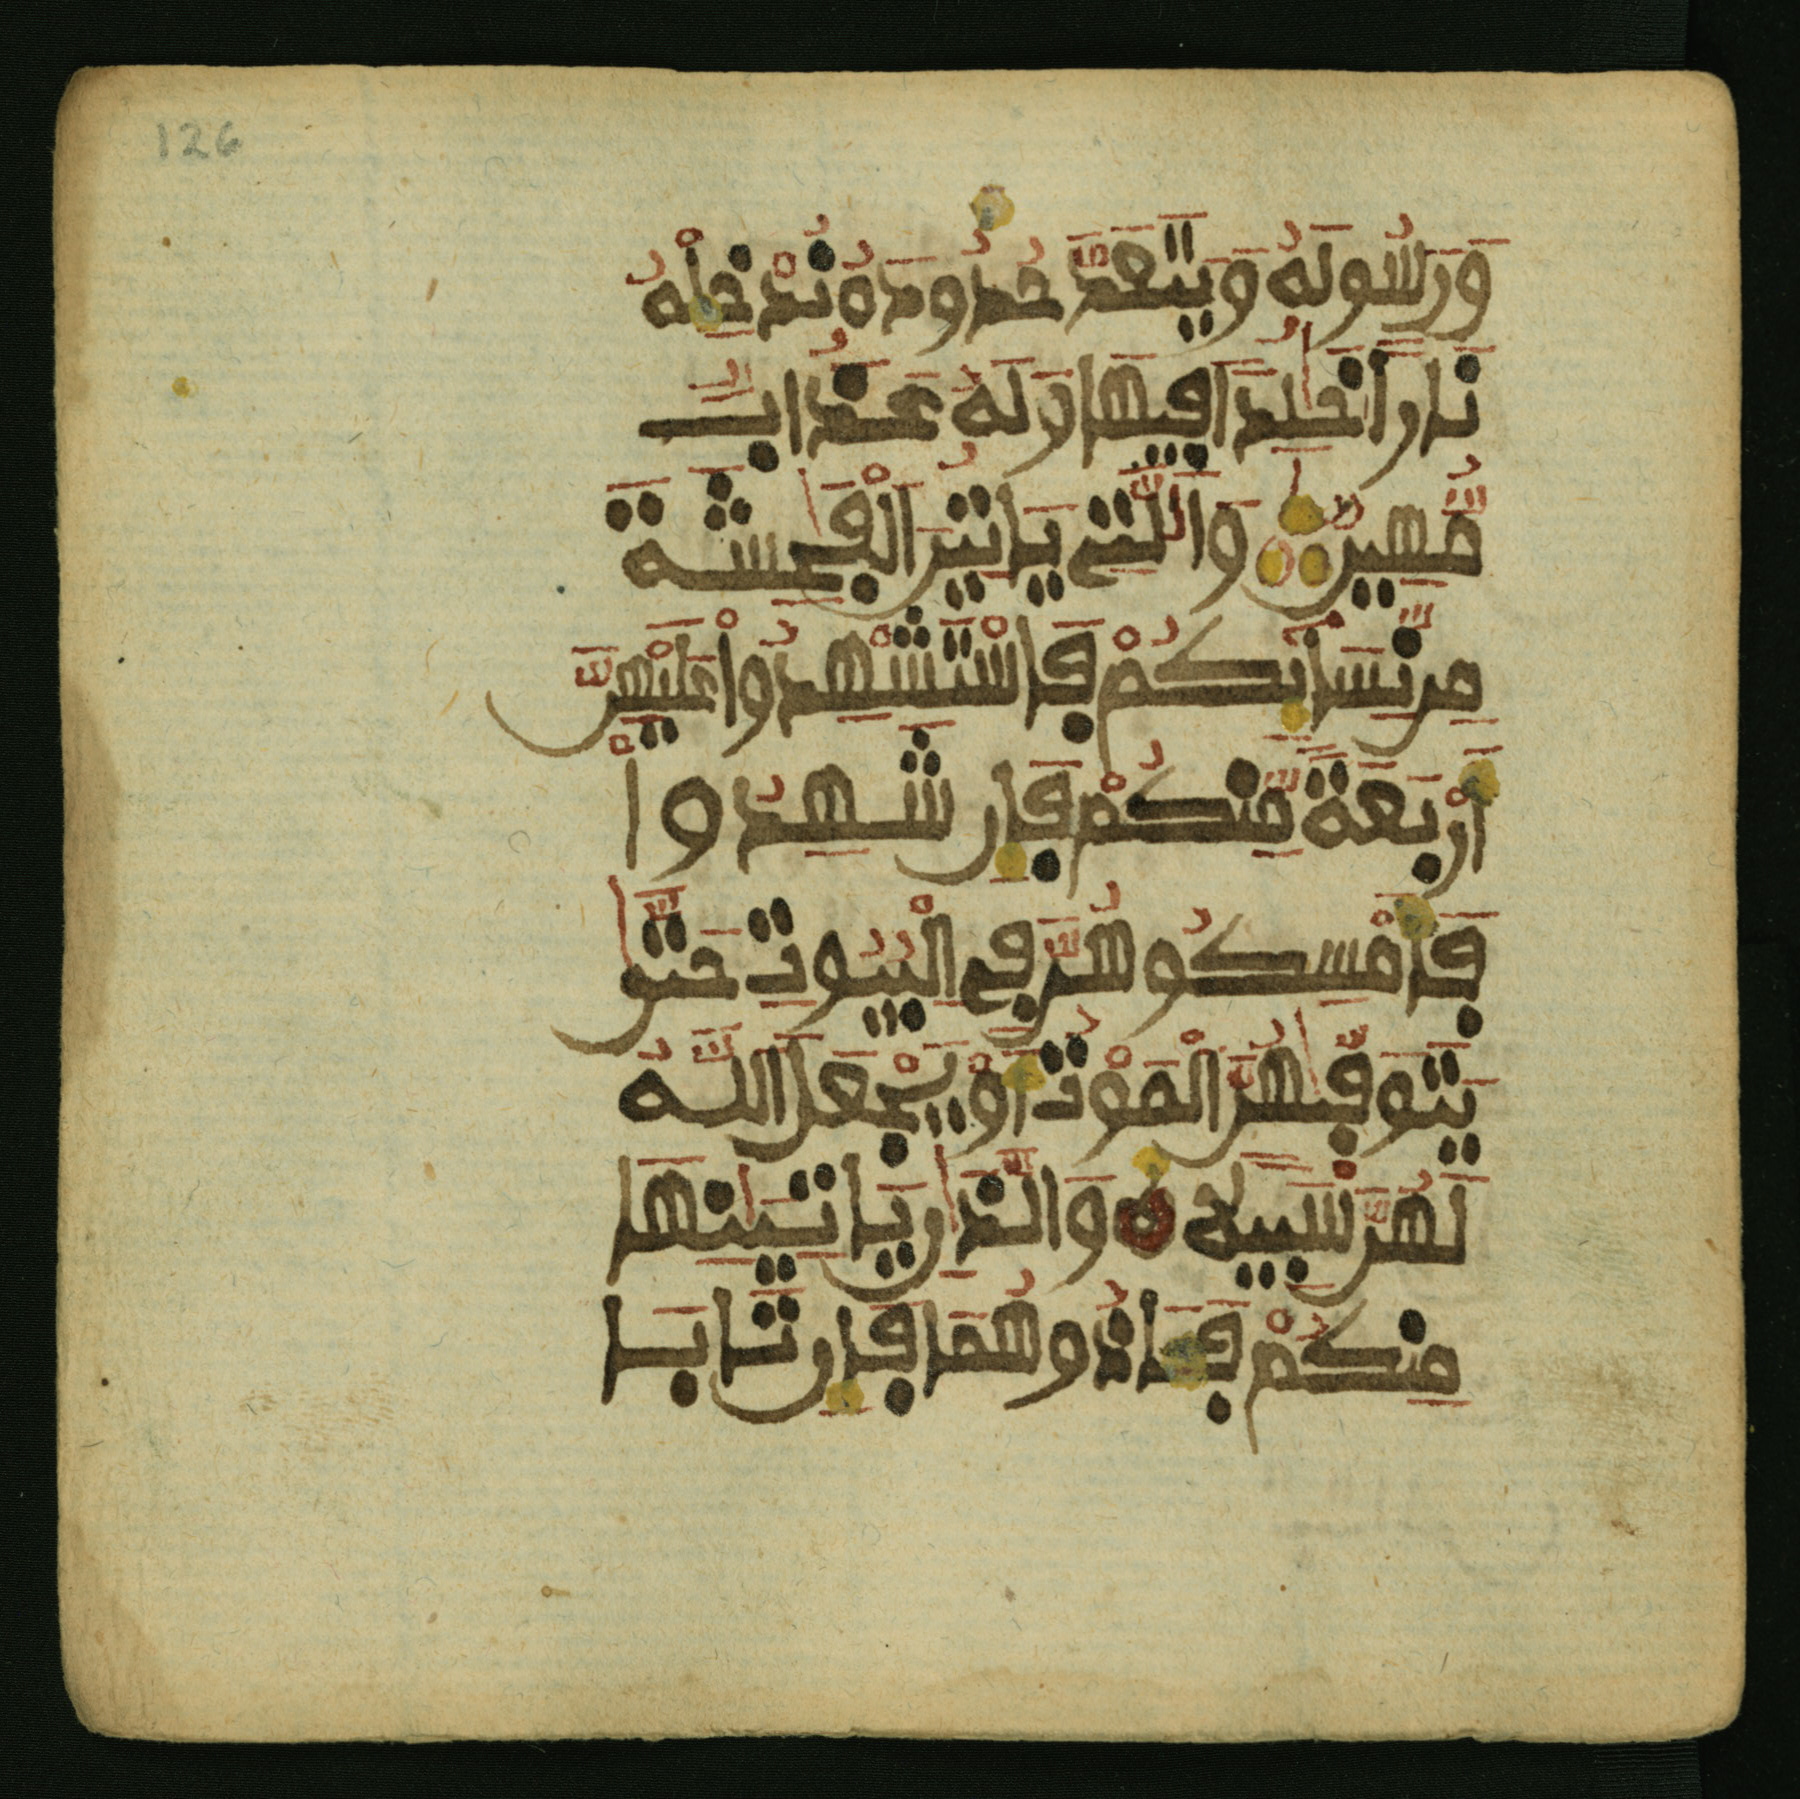 126
وَرَسُولَهُ وَيَتَعَدَّ حُدُودَهُ نُدْخِلْهُ
نَارًا خَٰلِدًا فِيهَا وَلَهُ عَذَابٌ
مُّهِينٌ وَالَّٰتِي يَاتِينَ الْفَٰحِشَةَ
مِن نِّسَايِكُمْ فَاسْتَشْهِدُواْ عَلَيْهِنَّ
أَرْبَعَةً مِّنكُمْ فَإِن شَهِدُواْ
فَأَمْسِكُوهُنَّ فِي الْبُيُوتِ حَتَّىٰ
يَتَوَفَّيٰهُنَّ الْمَوْتُ أَوْ يَجْعَلَ اللَّهُ
لَهُنَّ سَبِيلًا وَالَّذَٰنِ يَاتِيَٰنِهَا
مِنكُمْ فَـَٔاذُوهُمَا فَإِن تَابَا